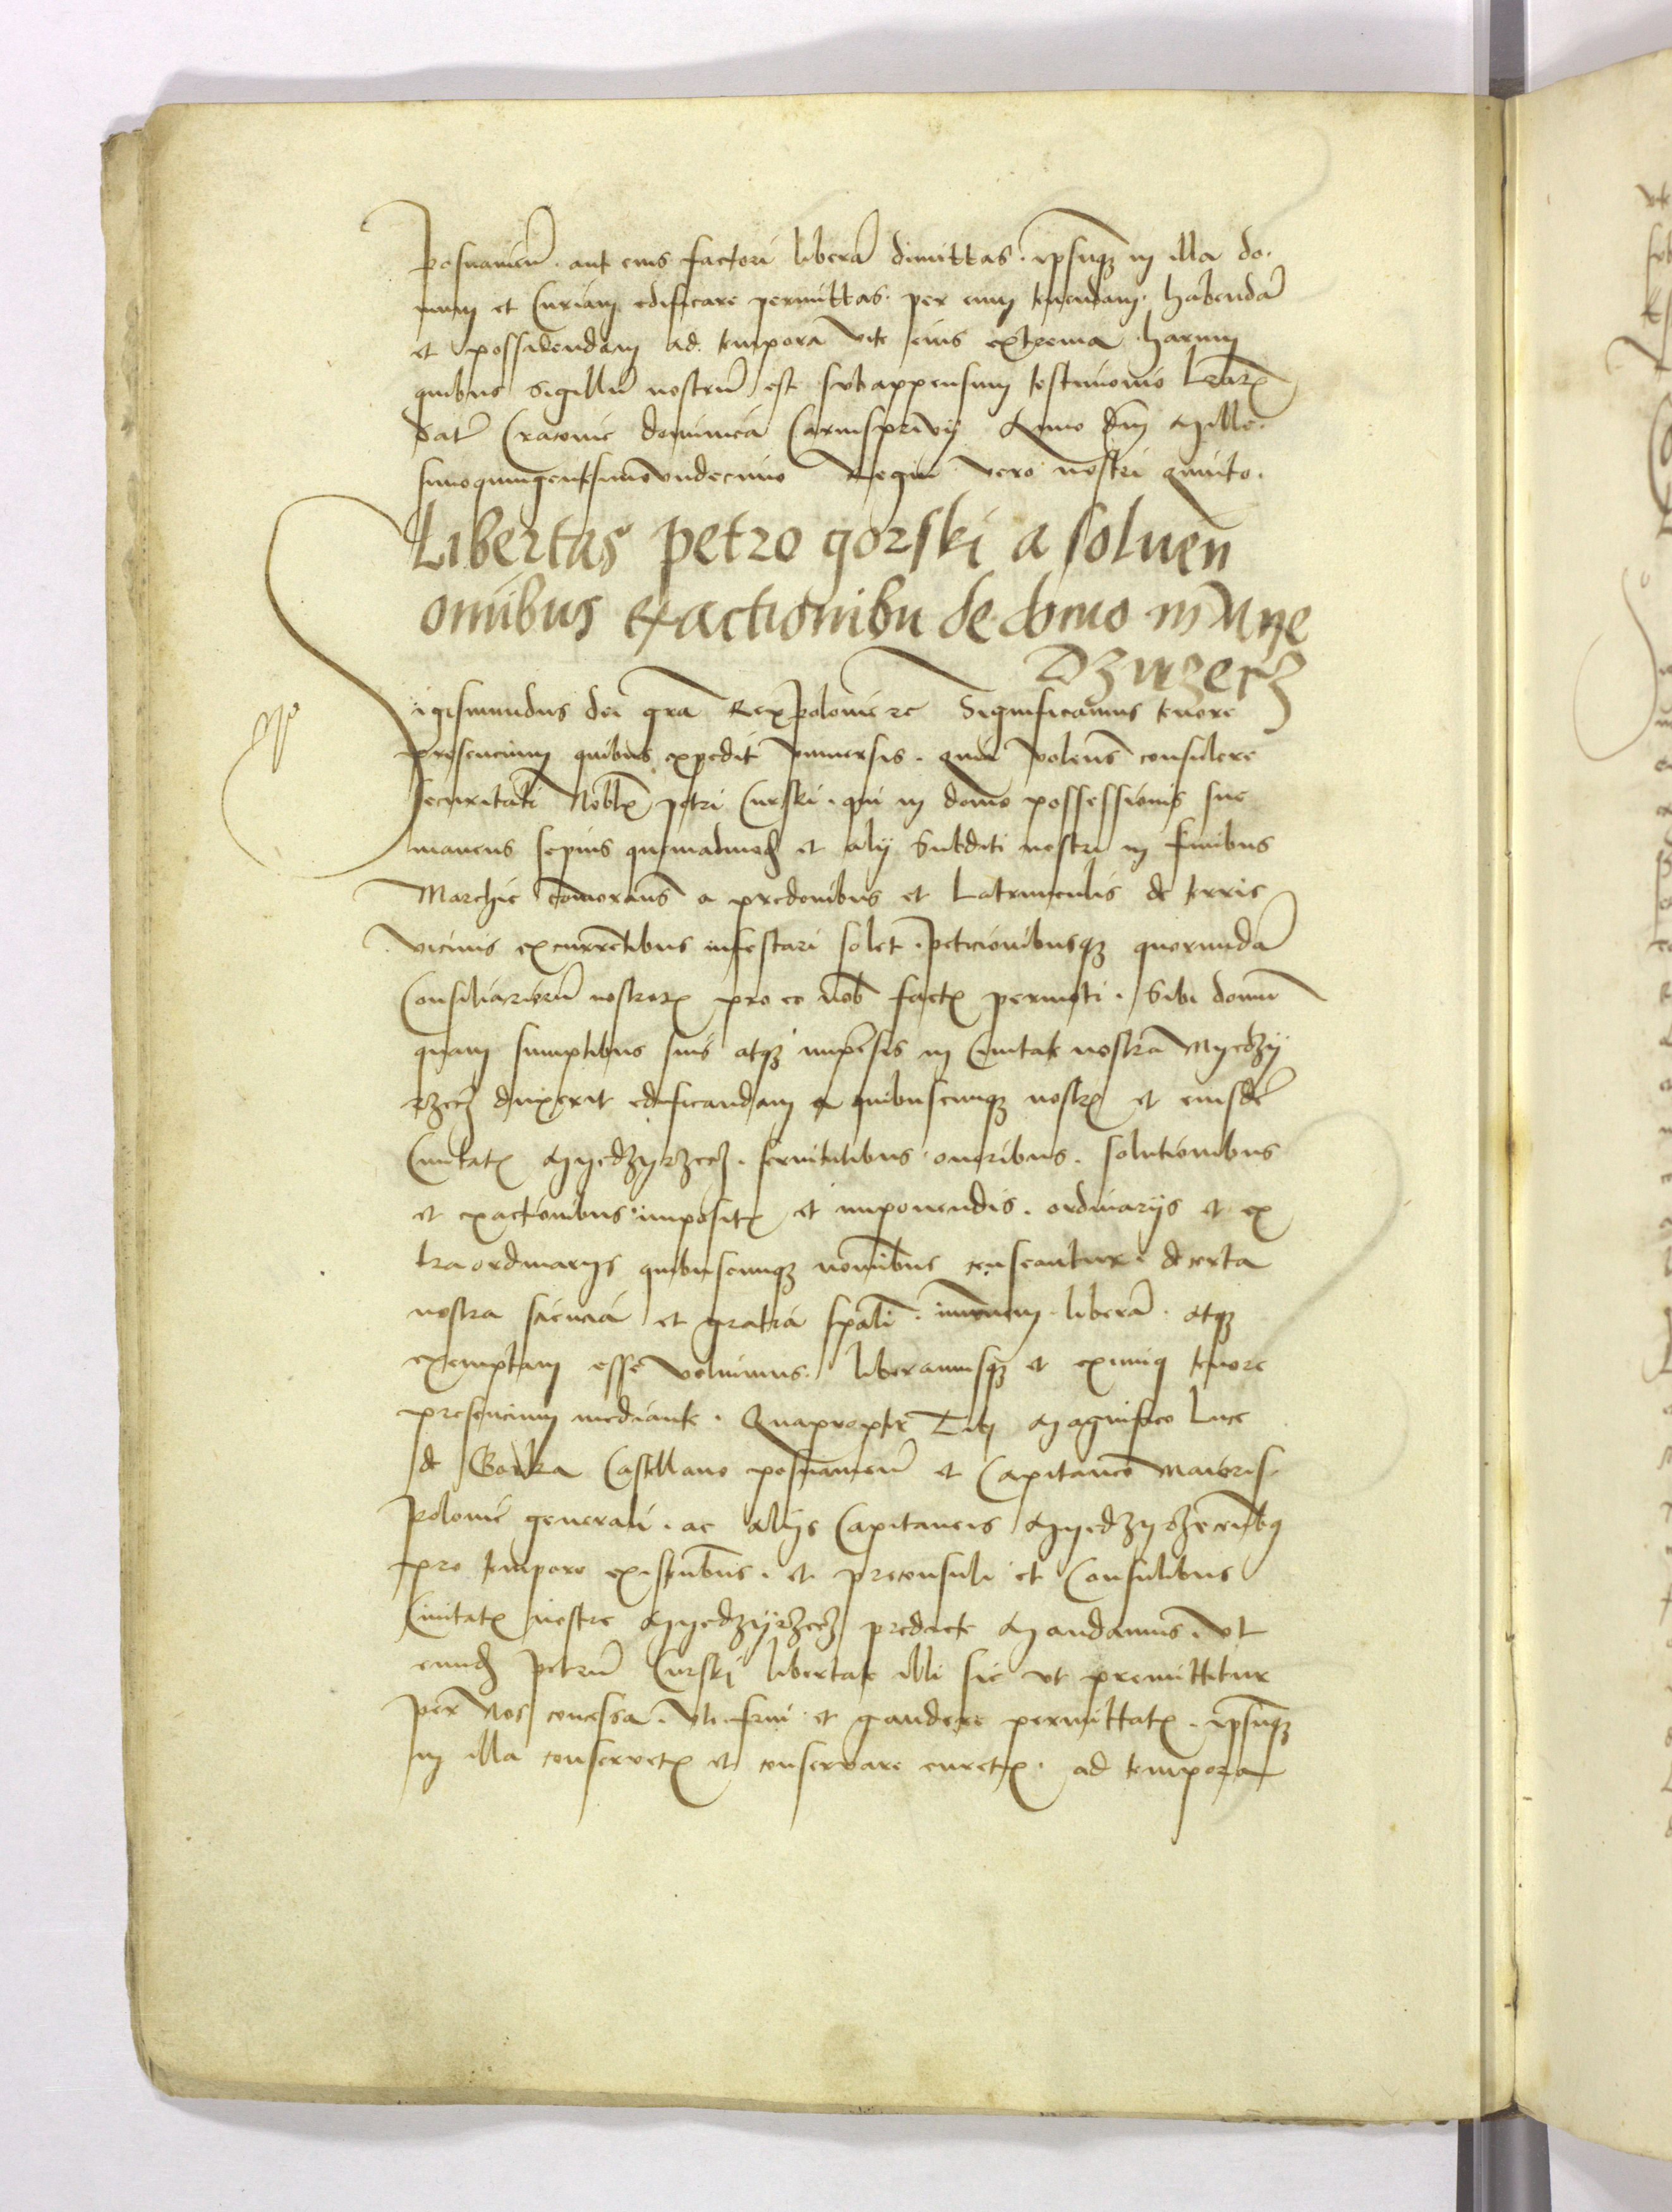 Posnanieñ . aut eius factori liberã dimittas . ipsumq3 in illa do-
mum et Curiam edificare permittas . per eum tenendam . habendã
et possidendam ad tempora vite eius extrema . harum
quibus Sigillũ nostrũ est subappensum testimonio Lrarum
Dat̃ Cracovie dominica Carnisprivij Anno dñi Mille-
simoquingentesimoundecimo Regni vero nostri quinto .
Libertas petro gorski a solueñ
omnibus exactionibu de domo in Mye
Dzirzecz
Sigismundus dei grã Rex Polonie rc Significamus tenore
presencium quibus expedit Vniuersis . quia volens consulere
securitati Nobilis petri Curski . qui in domo possessionis sue
manens sepius quemadmodum et alij Subditi nostri in finibus
Marchie cõmorañs a predonibus et Latrunculis de terris
vicinis excurrẽtibus infestari solet . Peticionibusq3 quorundã
Consiliariorũ nostrorum pro eo nob̃ factis permoti . Sibi domũ
quam sumptibus suis atq3 impẽsis in Ciuitate nostra Myedzy
rzecz duxerit edificandam a quibuscunq3 nostris et eiusdẽ
Ciuitatis Myedzyrzecz . seruitutibus oneribus . solutionibus
et exactionibus impositis et imponendis . ordinarijs et ex
traordinarijs quibuscunq3 nomĩbus censeantur . de certa
nostra sciencia et gratia spãli . imunem . liberã . atq3
exemptam esse volumus . liberamusq3 et eximimus tenore
presencium mediante . Quapropter Tibi Magnifico Luce
de Gorka Castellano posnanieñ et Capitaneo Maioris
Polonie generali . ac alijs Capitaneis Myedzyrzecenbus
pro tempore existenbus . et preconsuli et Consulibus
Ciuitatis nostre Myedzyrzecz predicte Mandamus . vt
eundem Petrũ Curski libertate illi sic vt premittitur
per Nos concessa . vti frui et gaudere permittatis . ipsumq3
in illa conseruetis et conseruare curetis . ad tempora